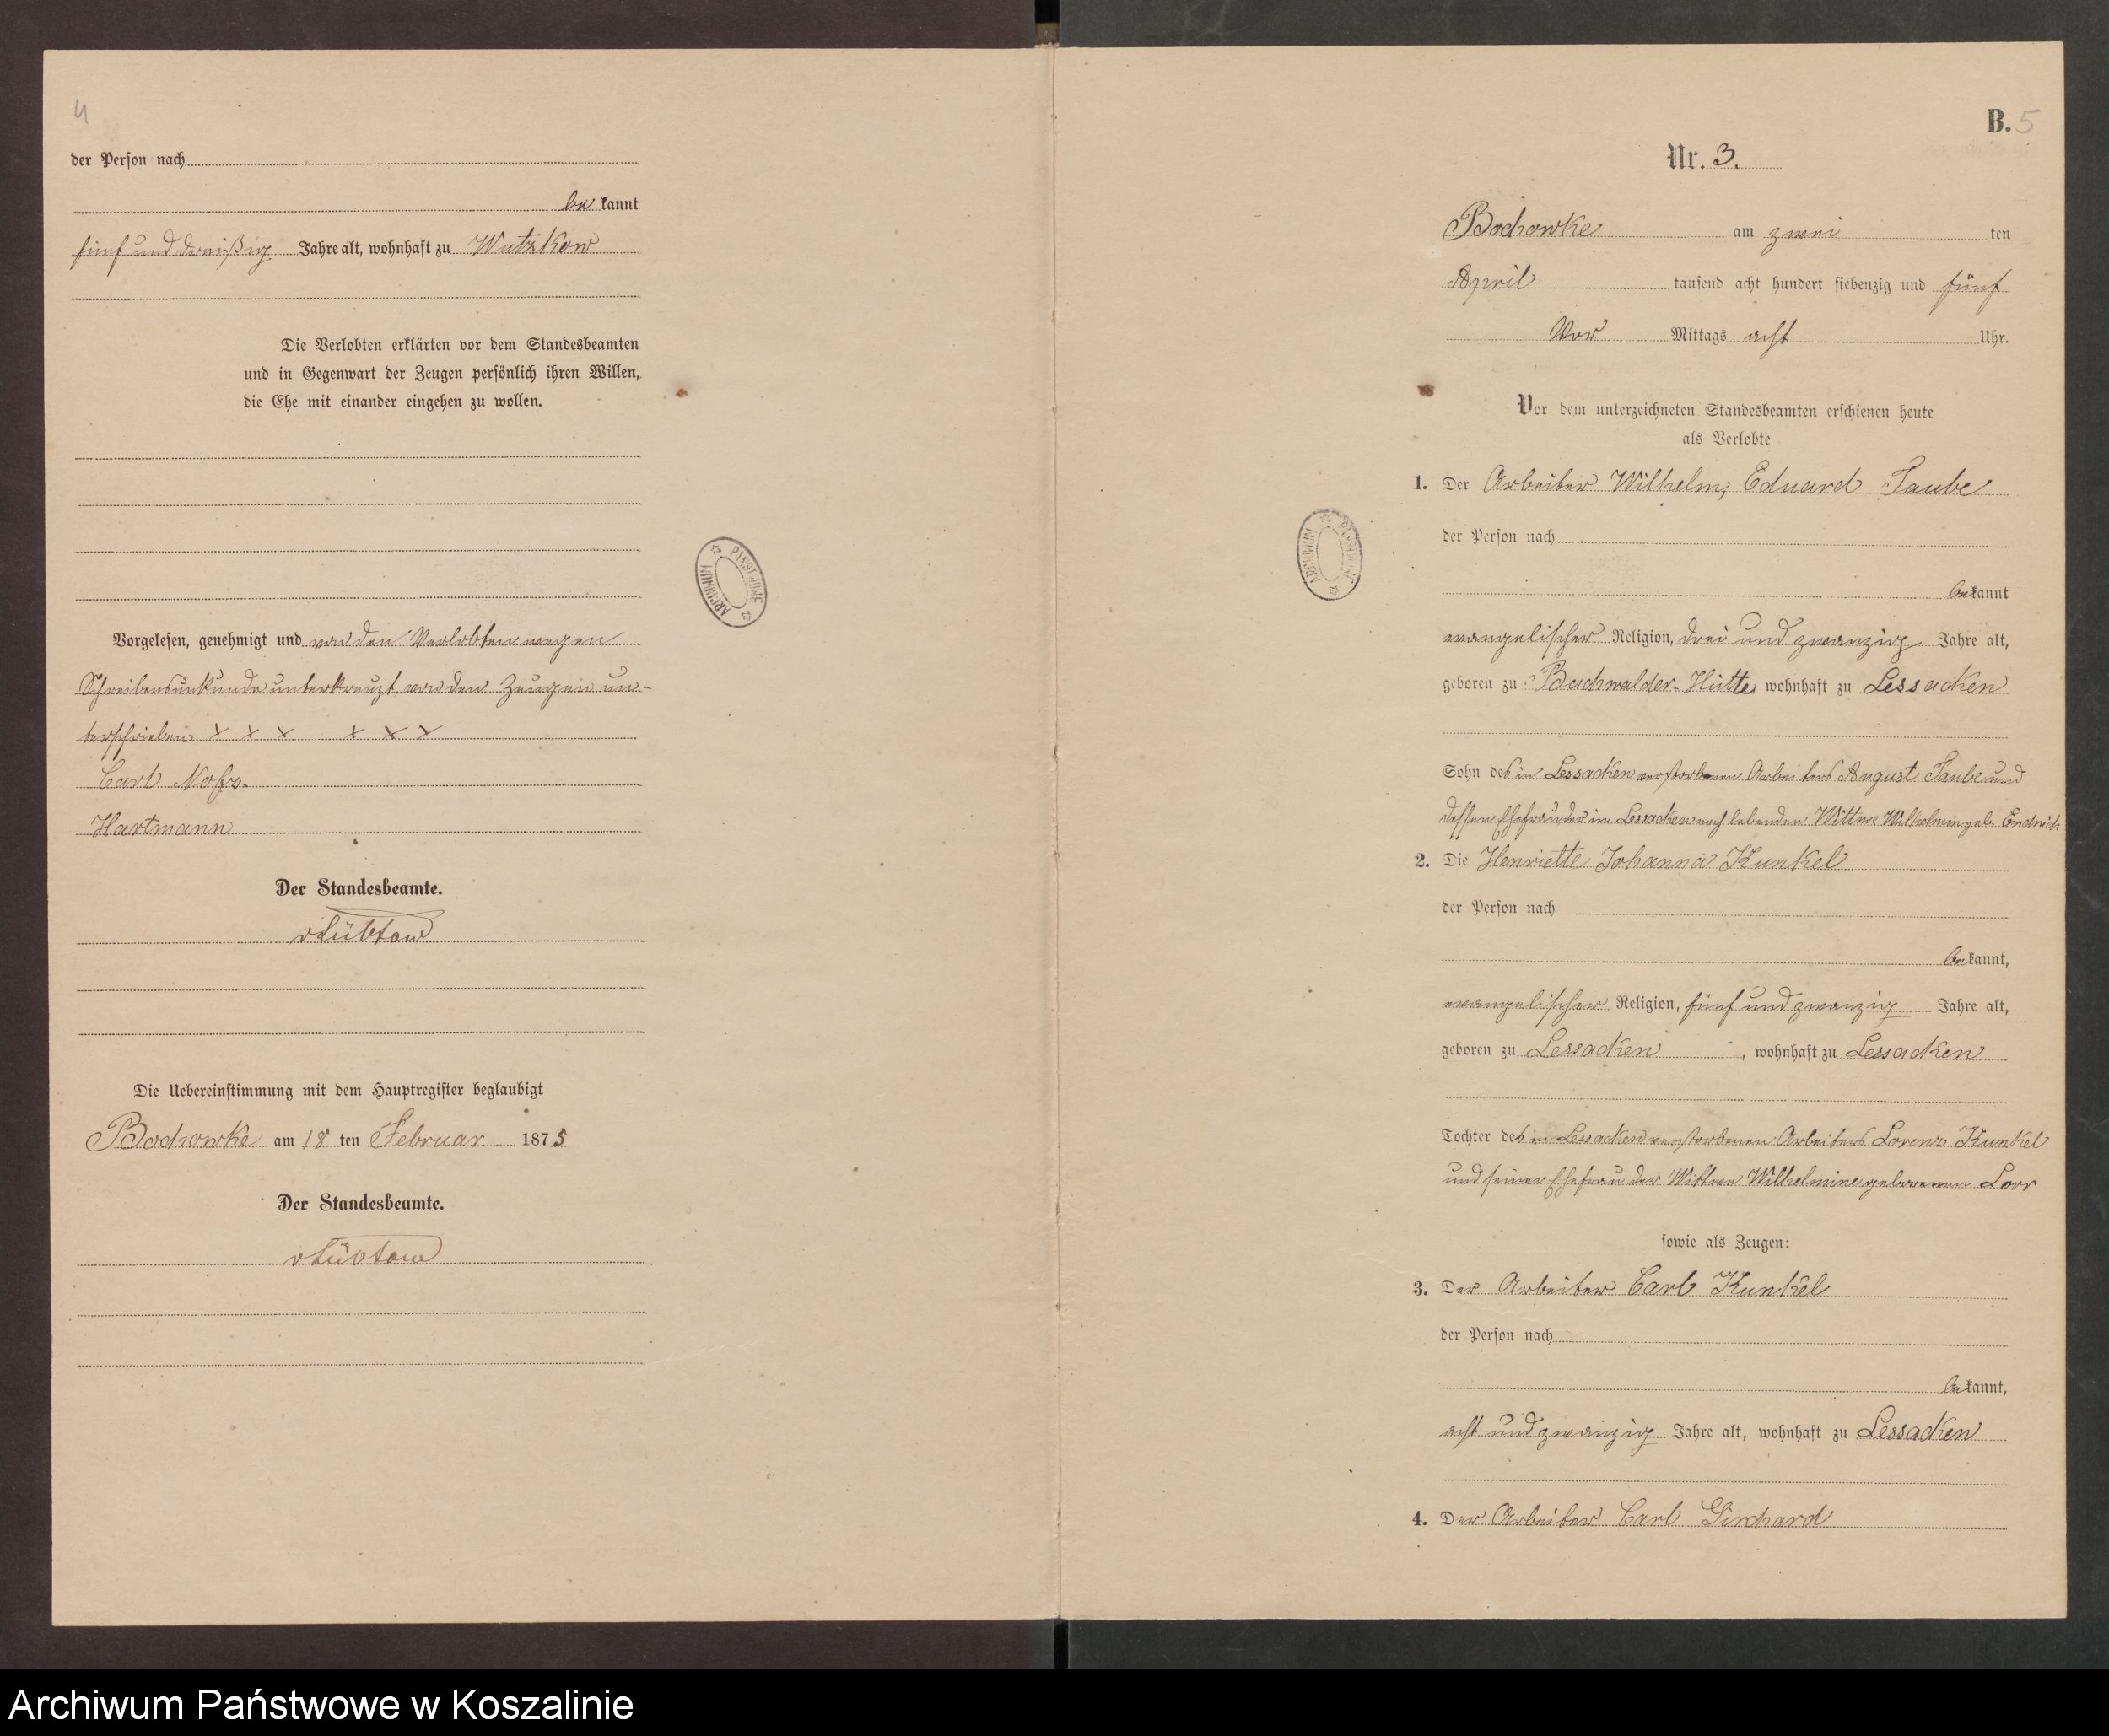 4
der Person nach
be kannt
fünf und dreißig Jahre alt, wohnhaft zu Wutzkow
Die Verlobten erklärten vor dem Standesbeamten
und in Gegenwart der Zeugen persönlich ihren Willen,
die Ehe mit einander eingehen zu wollen.
Vorgelesen, genehmigt und von den Verlobten wegen
Schreibensunkunde unterkreuzt, von den Zeugen un-
terschrieben x x x x x x
Carl
Hartmann
Der Standesbeamte.
vLübtow
Die Uebereinstimmung mit dem Hauptregister beglaubigt
Bochowke am 18 ten Februar 1875
Der Standesbeamte.
vLübtow
ARCHIWUM PAŃSTWOWE
B. 5
Nr. 3.
Bochowke am zwei ten
April tausend acht hundert siebenzig und fünf
Vor Mittags acht Uhr.
Vor dem unterzeichneten Standesbeamten erschienen heute
als Verlobte
1. Der Arbeiter Wilhelm, Eduard Taube
der Person nach
be kannt
evangelischer Religion, drei und zwanzig Jahre alt,
geboren zu Buchwalder-Hütte, wohnhaft zu Lessacken
Sohn des in Lessacken verstorbenen Arbeiters August Taube und
dessen Ehefrau der in Lessacken noch lebenden Wittwe Wilhelmin geb. Endrich
2. Die Henriette Johanna Kunkel
der Person nach
be kannt,
evangelischer Religion, fünf und zwanzig Jahre alt,
geboren zu Lessacken, wohnhaft zu Lessacken
Tochter des in Lessacken verstorbenen Arbeiters Lorenz Kunkel
und seiner Ehefrau der Wittwe Wilhelmine geborenen Lorr
sowie als Zeugen:
3. Der Arbeiter Carl Kunkel
der Person nach
be kannt,
acht und zwanzig Jahre alt, wohnhaft zu Lessacken
4. Der Arbeiter Carl Girchard
ARCHIWUM PAŃSTWOWE
Archiwum Państwowe w Koszalinie